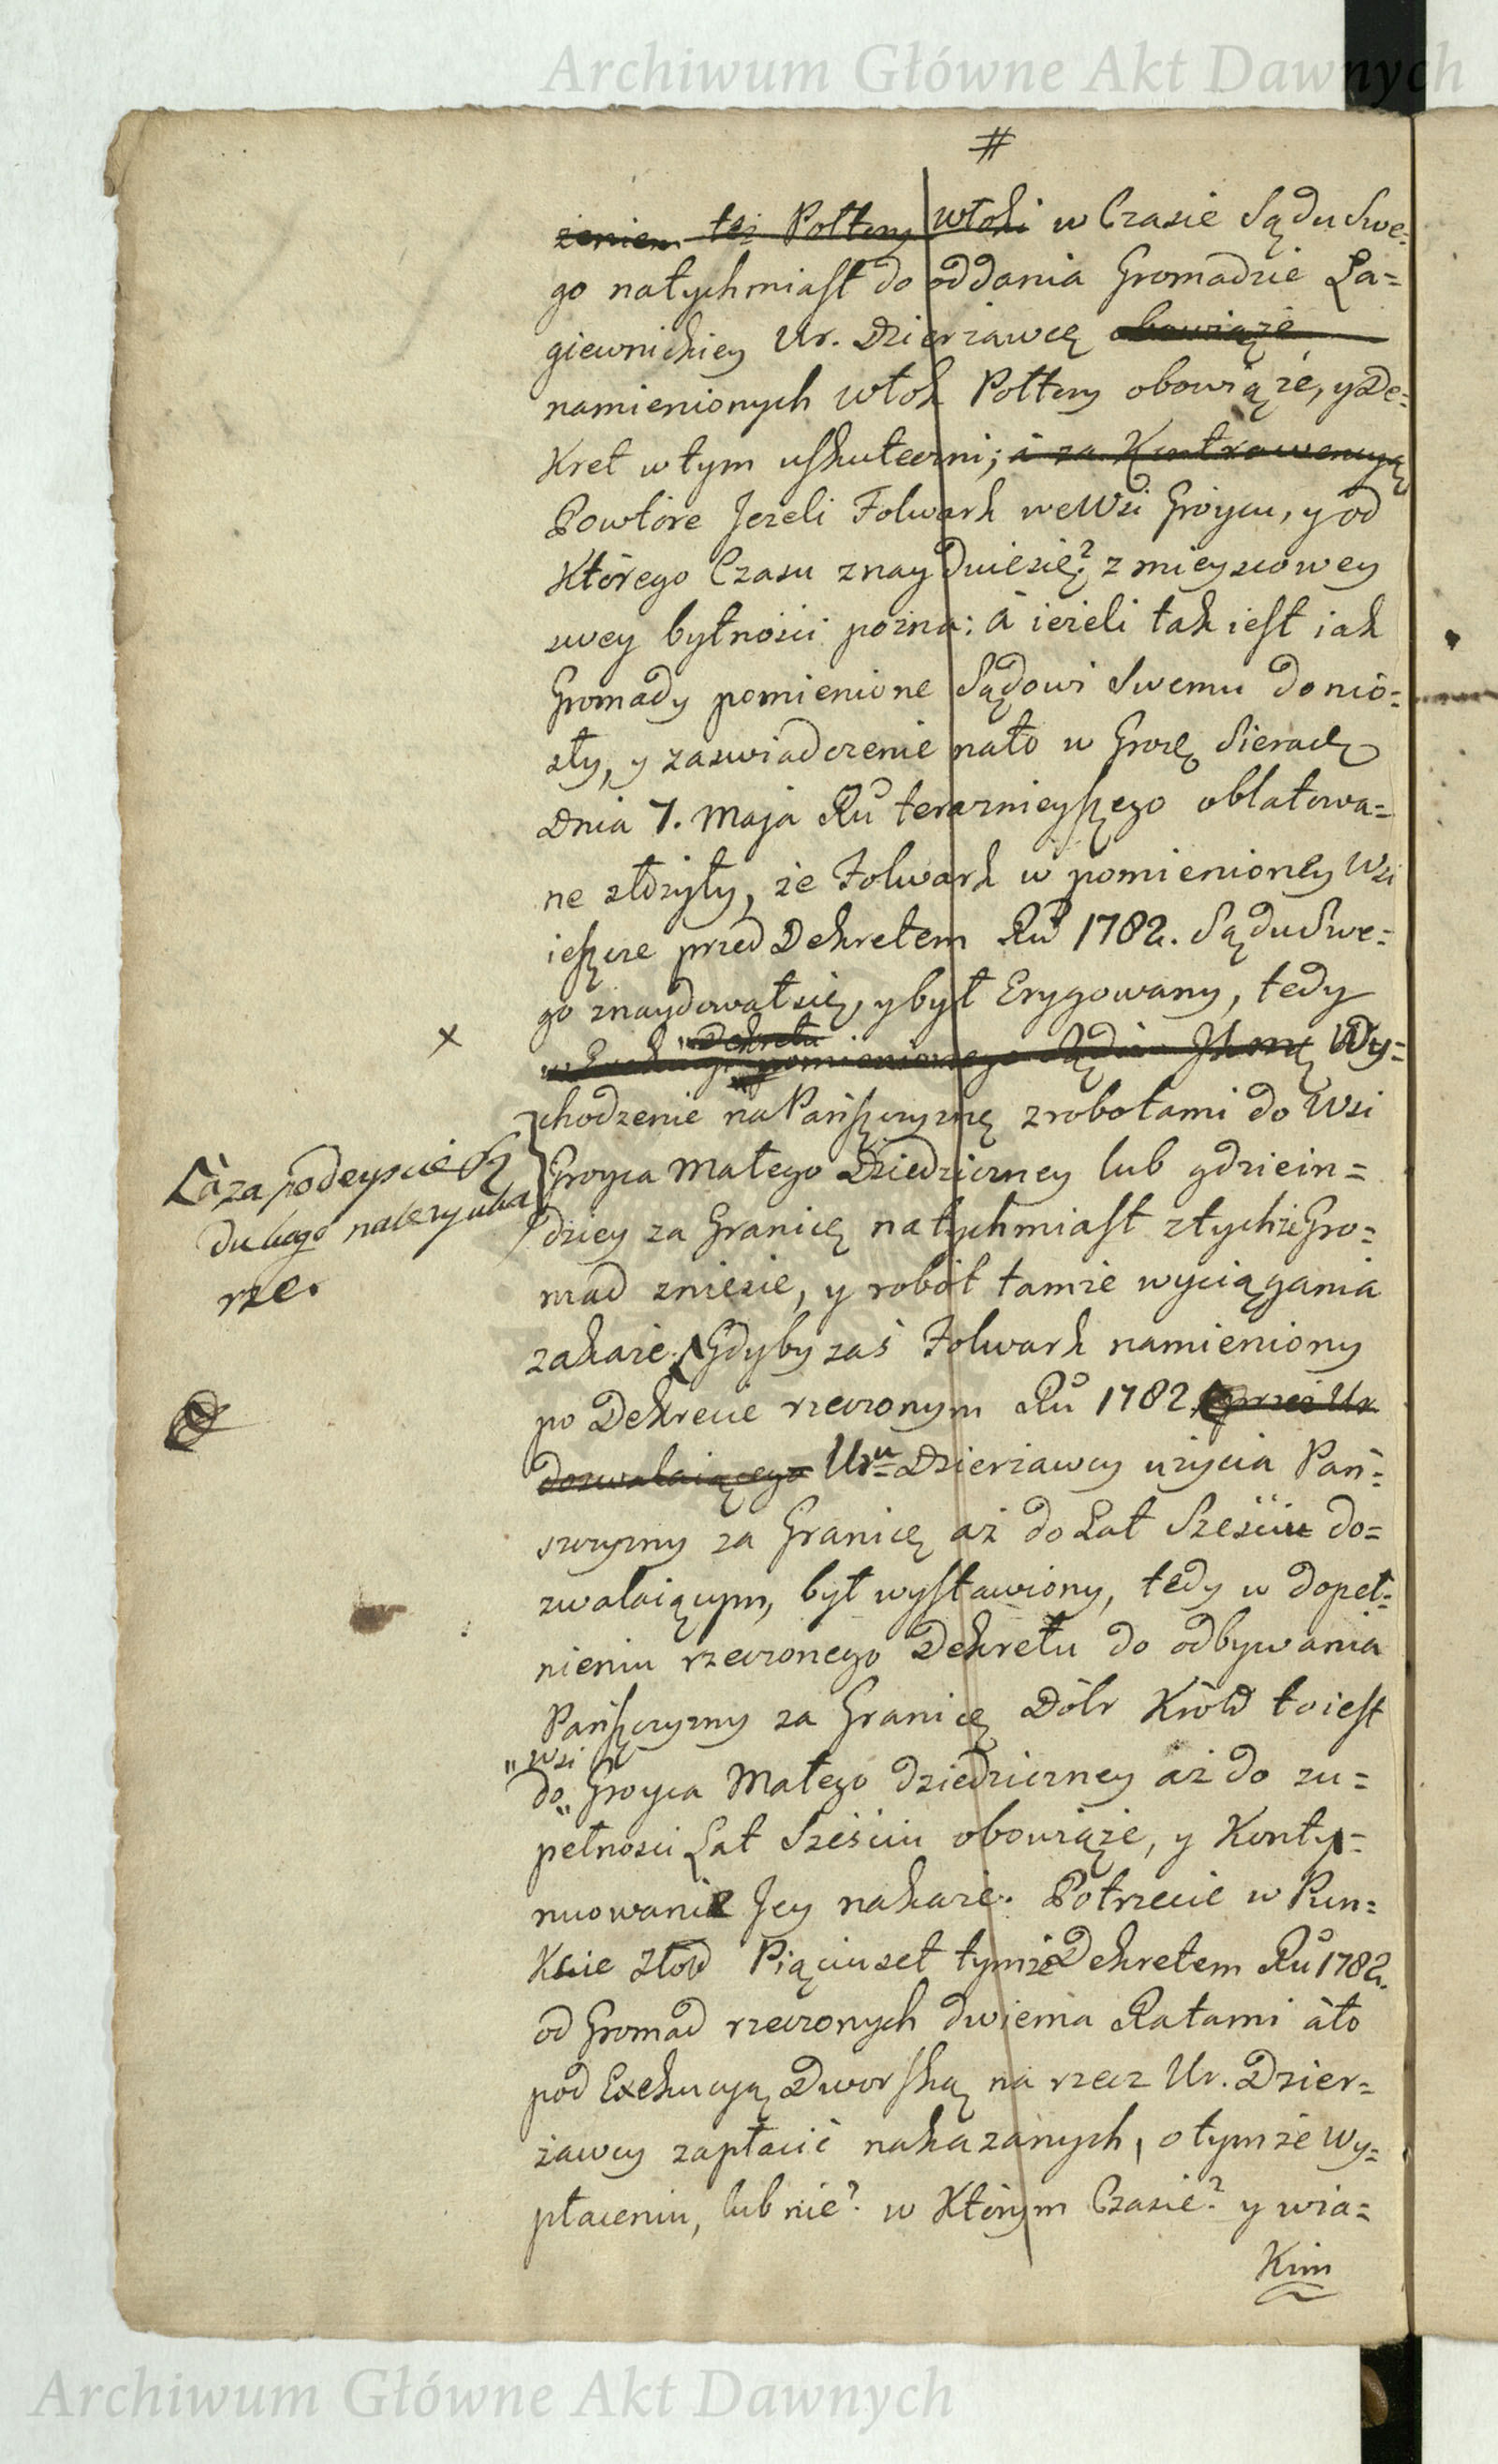 Archiwum Główne Akt Dawnych
#
żeniem też Połtory włoki w Czasie Sądu Swe=
go natychmiast do oddania Gromadzie Ła=
giewnickiey Ur. Dzierżawcę obowiąże
namienionych włok Połtory obowiąże, y De=
kret w tym uskuteczni; á za Kontrawencyą
Powtóre Jeżeli Folwark we Wsi Gróycu, y od
którego Czasu znayduiesię? z mieyscowey
swey bytności pozna: á ieżeli tak iest iak
Gromady pomienione Sądowi Swemu donio=
sły, y zaswiadczenie nato w Grodz. Sieradz.
Dnia 7. Maja Ru teraznieyszego oblatowa=
ne złożyły, że Folwark w pomienioney Wsi
ieszcze przed Dekretem Ru 1782. Sądu Swe=
go znaydował się, y był Erygowany, tedy
Dekretu
pomienionego Wy=
x
chodzenie na Pańszczyznę z robotami do Wsi
Groyca Małego Dziedziczney lub gdziein=
dziey za Granicę natychmiast z tychże Gro=
mad zniesie, y robót tamże wyciągania
zakaże. Gdyby zaś Folwark namieniony
á za podeyscie Są
du tego należy uka
rze.
po Dekrecie rzeczonym Ru 1782. przez Ur
dozwalaiącego Uru Dzierżawcy użycia Pań=
szczyzny za Granicę aż do Lat Sześciu do=
zwalaiącym, był wystawiony, tedy w dopeł=
nieniu rzeczonego Dekretu do odbywania
Pańszczyzny za Granicę Dóbr Król to iest
" Wsi
do " Groyca Małego dziedziczney aż do zu=
pełnosci Lat Sześciu obowiąże, y Konty=
nuowanie Jey nakaże. Potrzecie w Pun=
kcie Złotd Pięciuset tymże Dekretem Ru 1782.
od Gromad rzeczonych dwiema Ratami áto
pod Exekucyą Dworską na rzecz Ur. Dzier=
żawcy zapłacić nakazanych, o tymże wy=
płaceniu, lub nie? w którym Czasie? y wia=
kim
Archiwum Główne Akt Dawnych